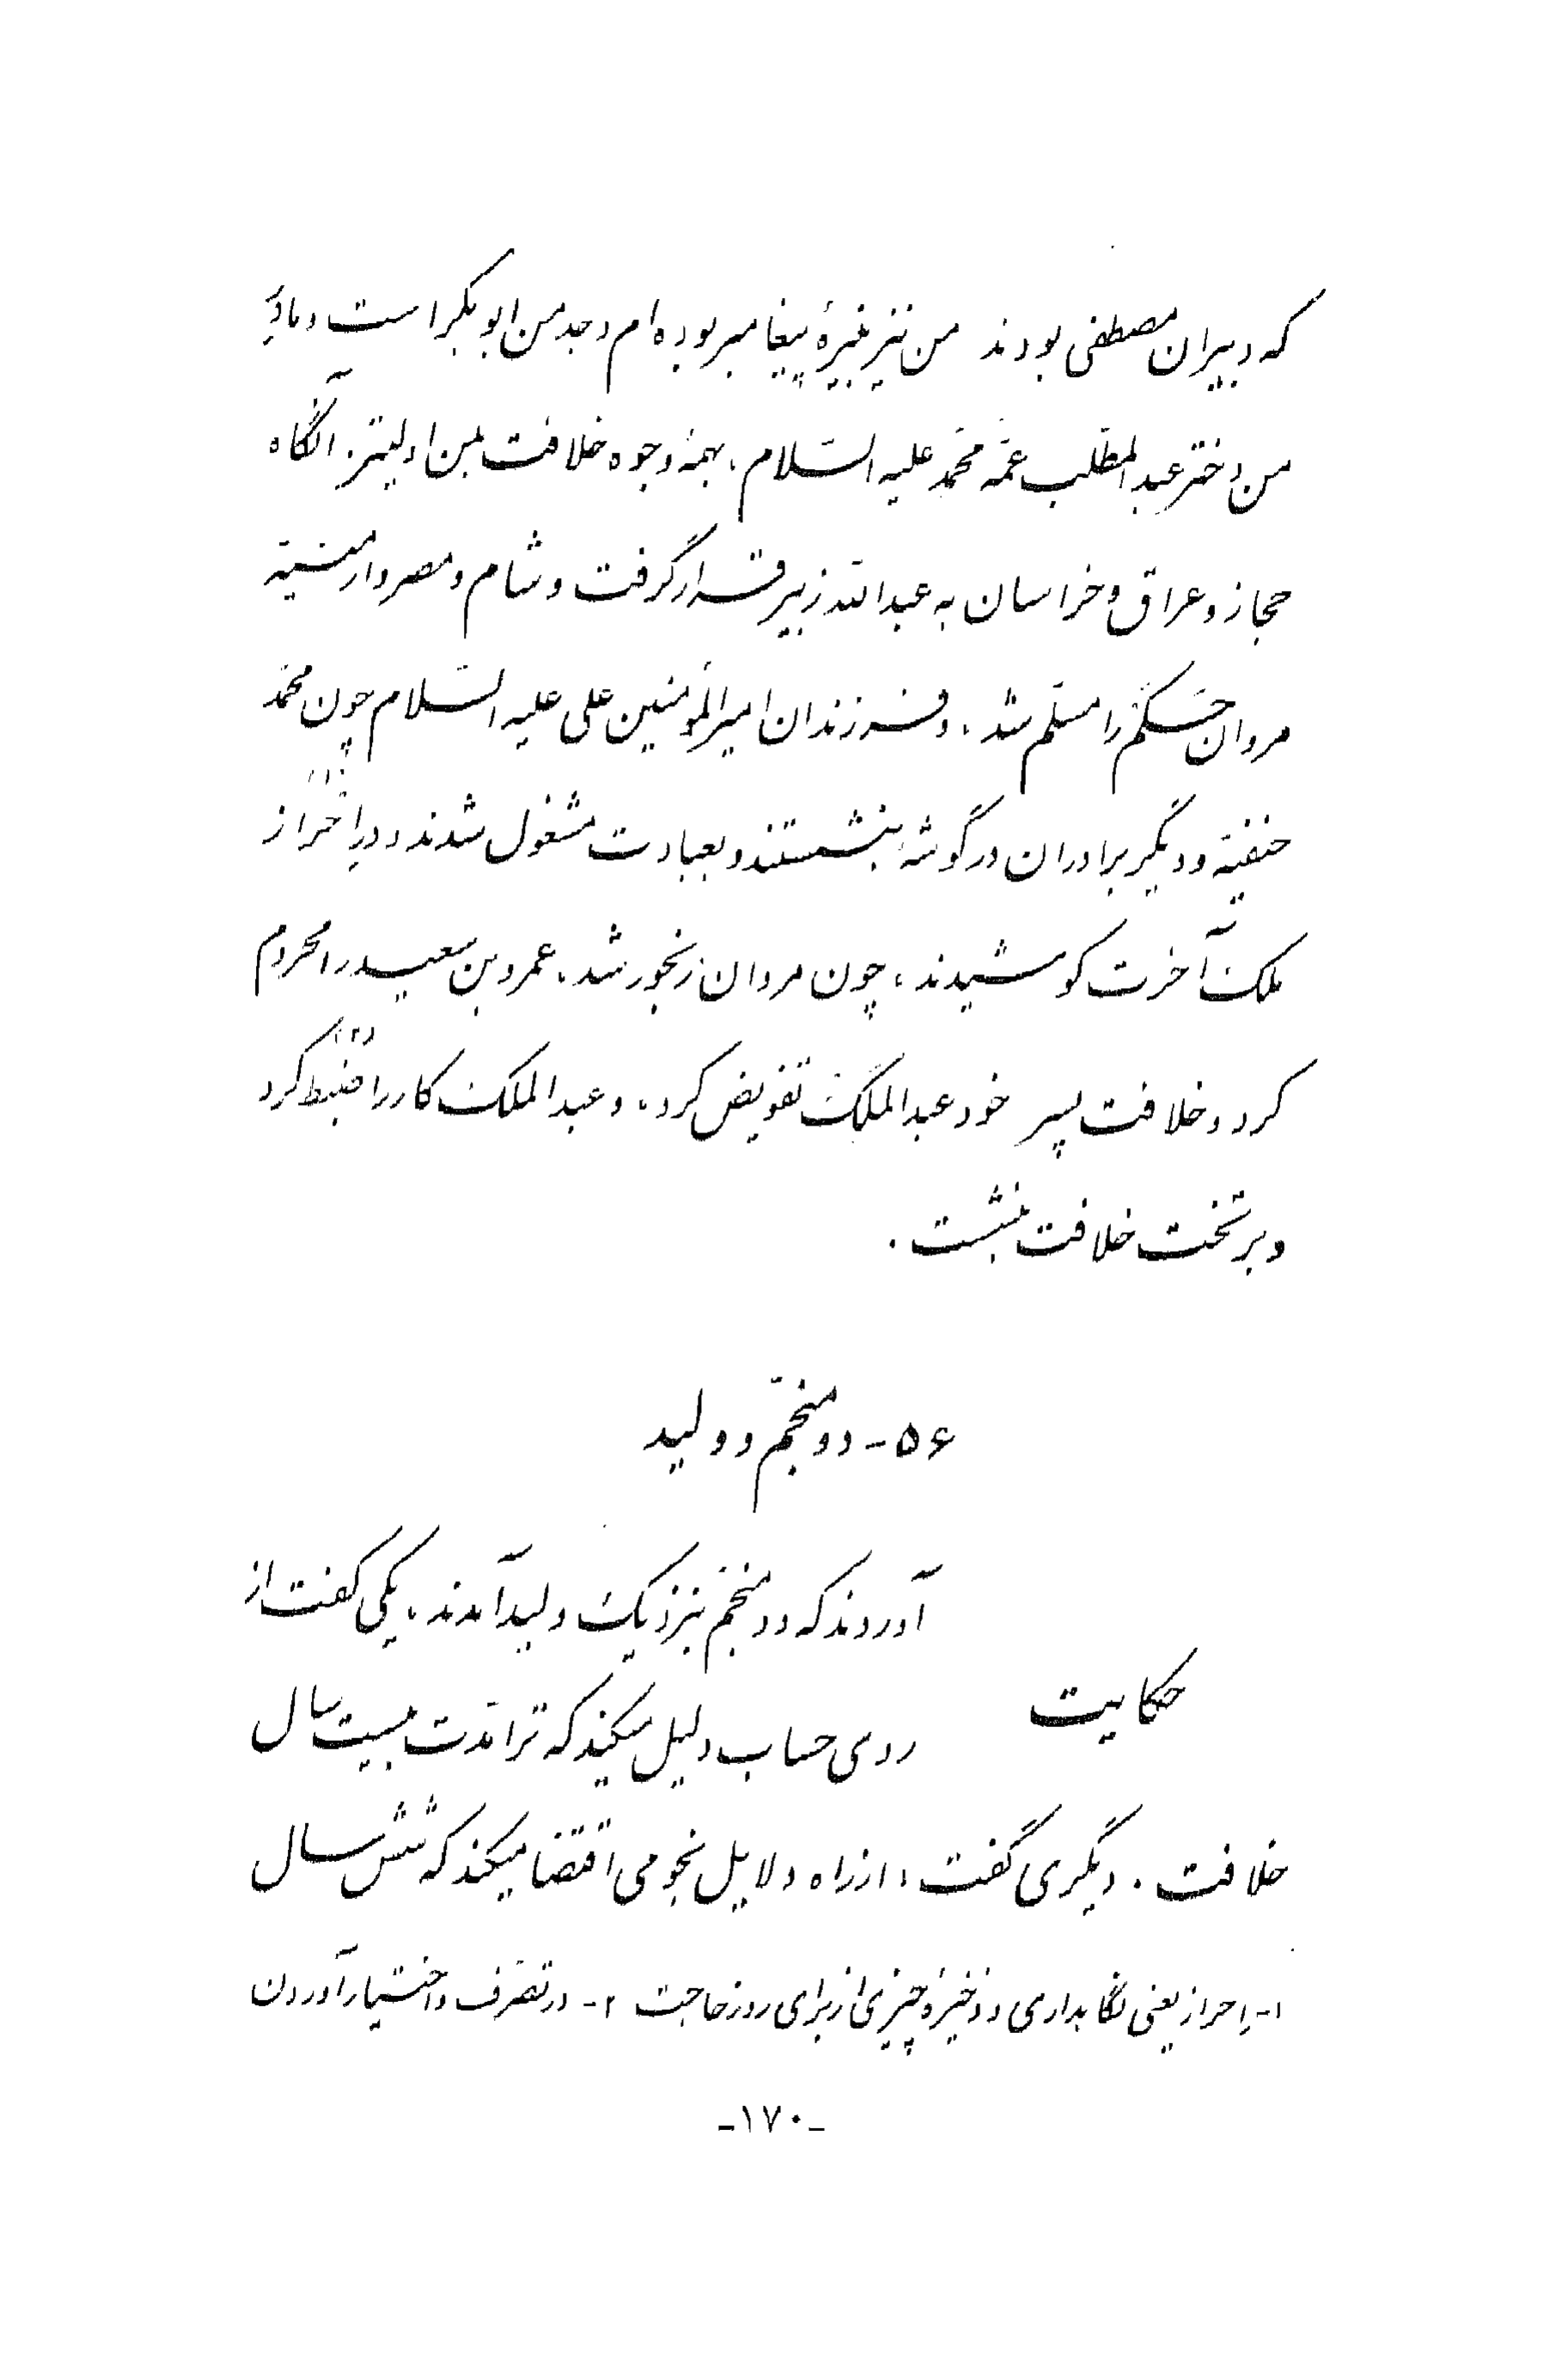 که دبیران مصطفی بودند من نیز نبیرهٔ پیغامبر بوده‌ام و جد من ابوبکر است و مادر
من دختر عبدالمطّلب عمّه محمّد علیه السّلام، بهمهٔ وجوه خلافت بمن اولیتر. آنگاه
حجاز و عراق و خراسان به عبدالله زبیر قرار گرفت و شام و مصر و ارمنیّة
مروان حکَم را مسلّم شد، و فرزندان امیرالمؤمنین علی علیه السّلام چون محمّد
حنفیّة و دیگر برادران در گوشه بنشستند و بعبادت مشغول شدند و در احراز (۱)
ملک آخرت کوشیدند، چون مروان رنجور شد، عمرو بن سعید را محروم
کرد و خلافت پسر خود عبدالملک تفویض کرد، و عبدالملک کار را ضبط (۲) کرد
و بر تخت خلافت بنشست.
۵۶- دو منجّم و ولید
آوردند که دو منجّم بنزدیک ولید آمدند، یکی گفت از
حکایت
روی حساب دلیل میکند که ترا مدّت بیست سال
خلافت. دیگری گفت، از راه دلایل نجومی اقتضا میکند که شش سال
۱- اِحراز یعنی نگاهداری و ذخیرهٔ چیزی از برای روز حاجت ۲- در تصرّف و اختیار آوردن
-۱۷۰-